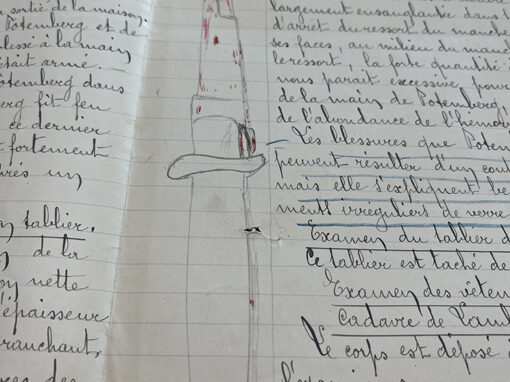 sortie de la maison.
Potemberg et de
blessé à la main
était armé.
Potemberg dans
berg fit feu
ce dernier
fortement
après un
tablier.
de la
nette
l'épaisseur
tranchant,
des
largement ensanglantée dans l
d'arrêt du ressort du manche
ses faces, au milieu du manc
le ressort, la forte quantité
nous paraît excessive pour
de la main de Potemberg,
de l'abondance de l'hémor
Les blessures que Poten
peuvent résulter d'un cout
mais elle s'expliquent be
ments irréguliers de verre
Examen du tablier d
Ce tablier est taché de
Examen des vêten
Cadavre de Lam
Le corps est déposé